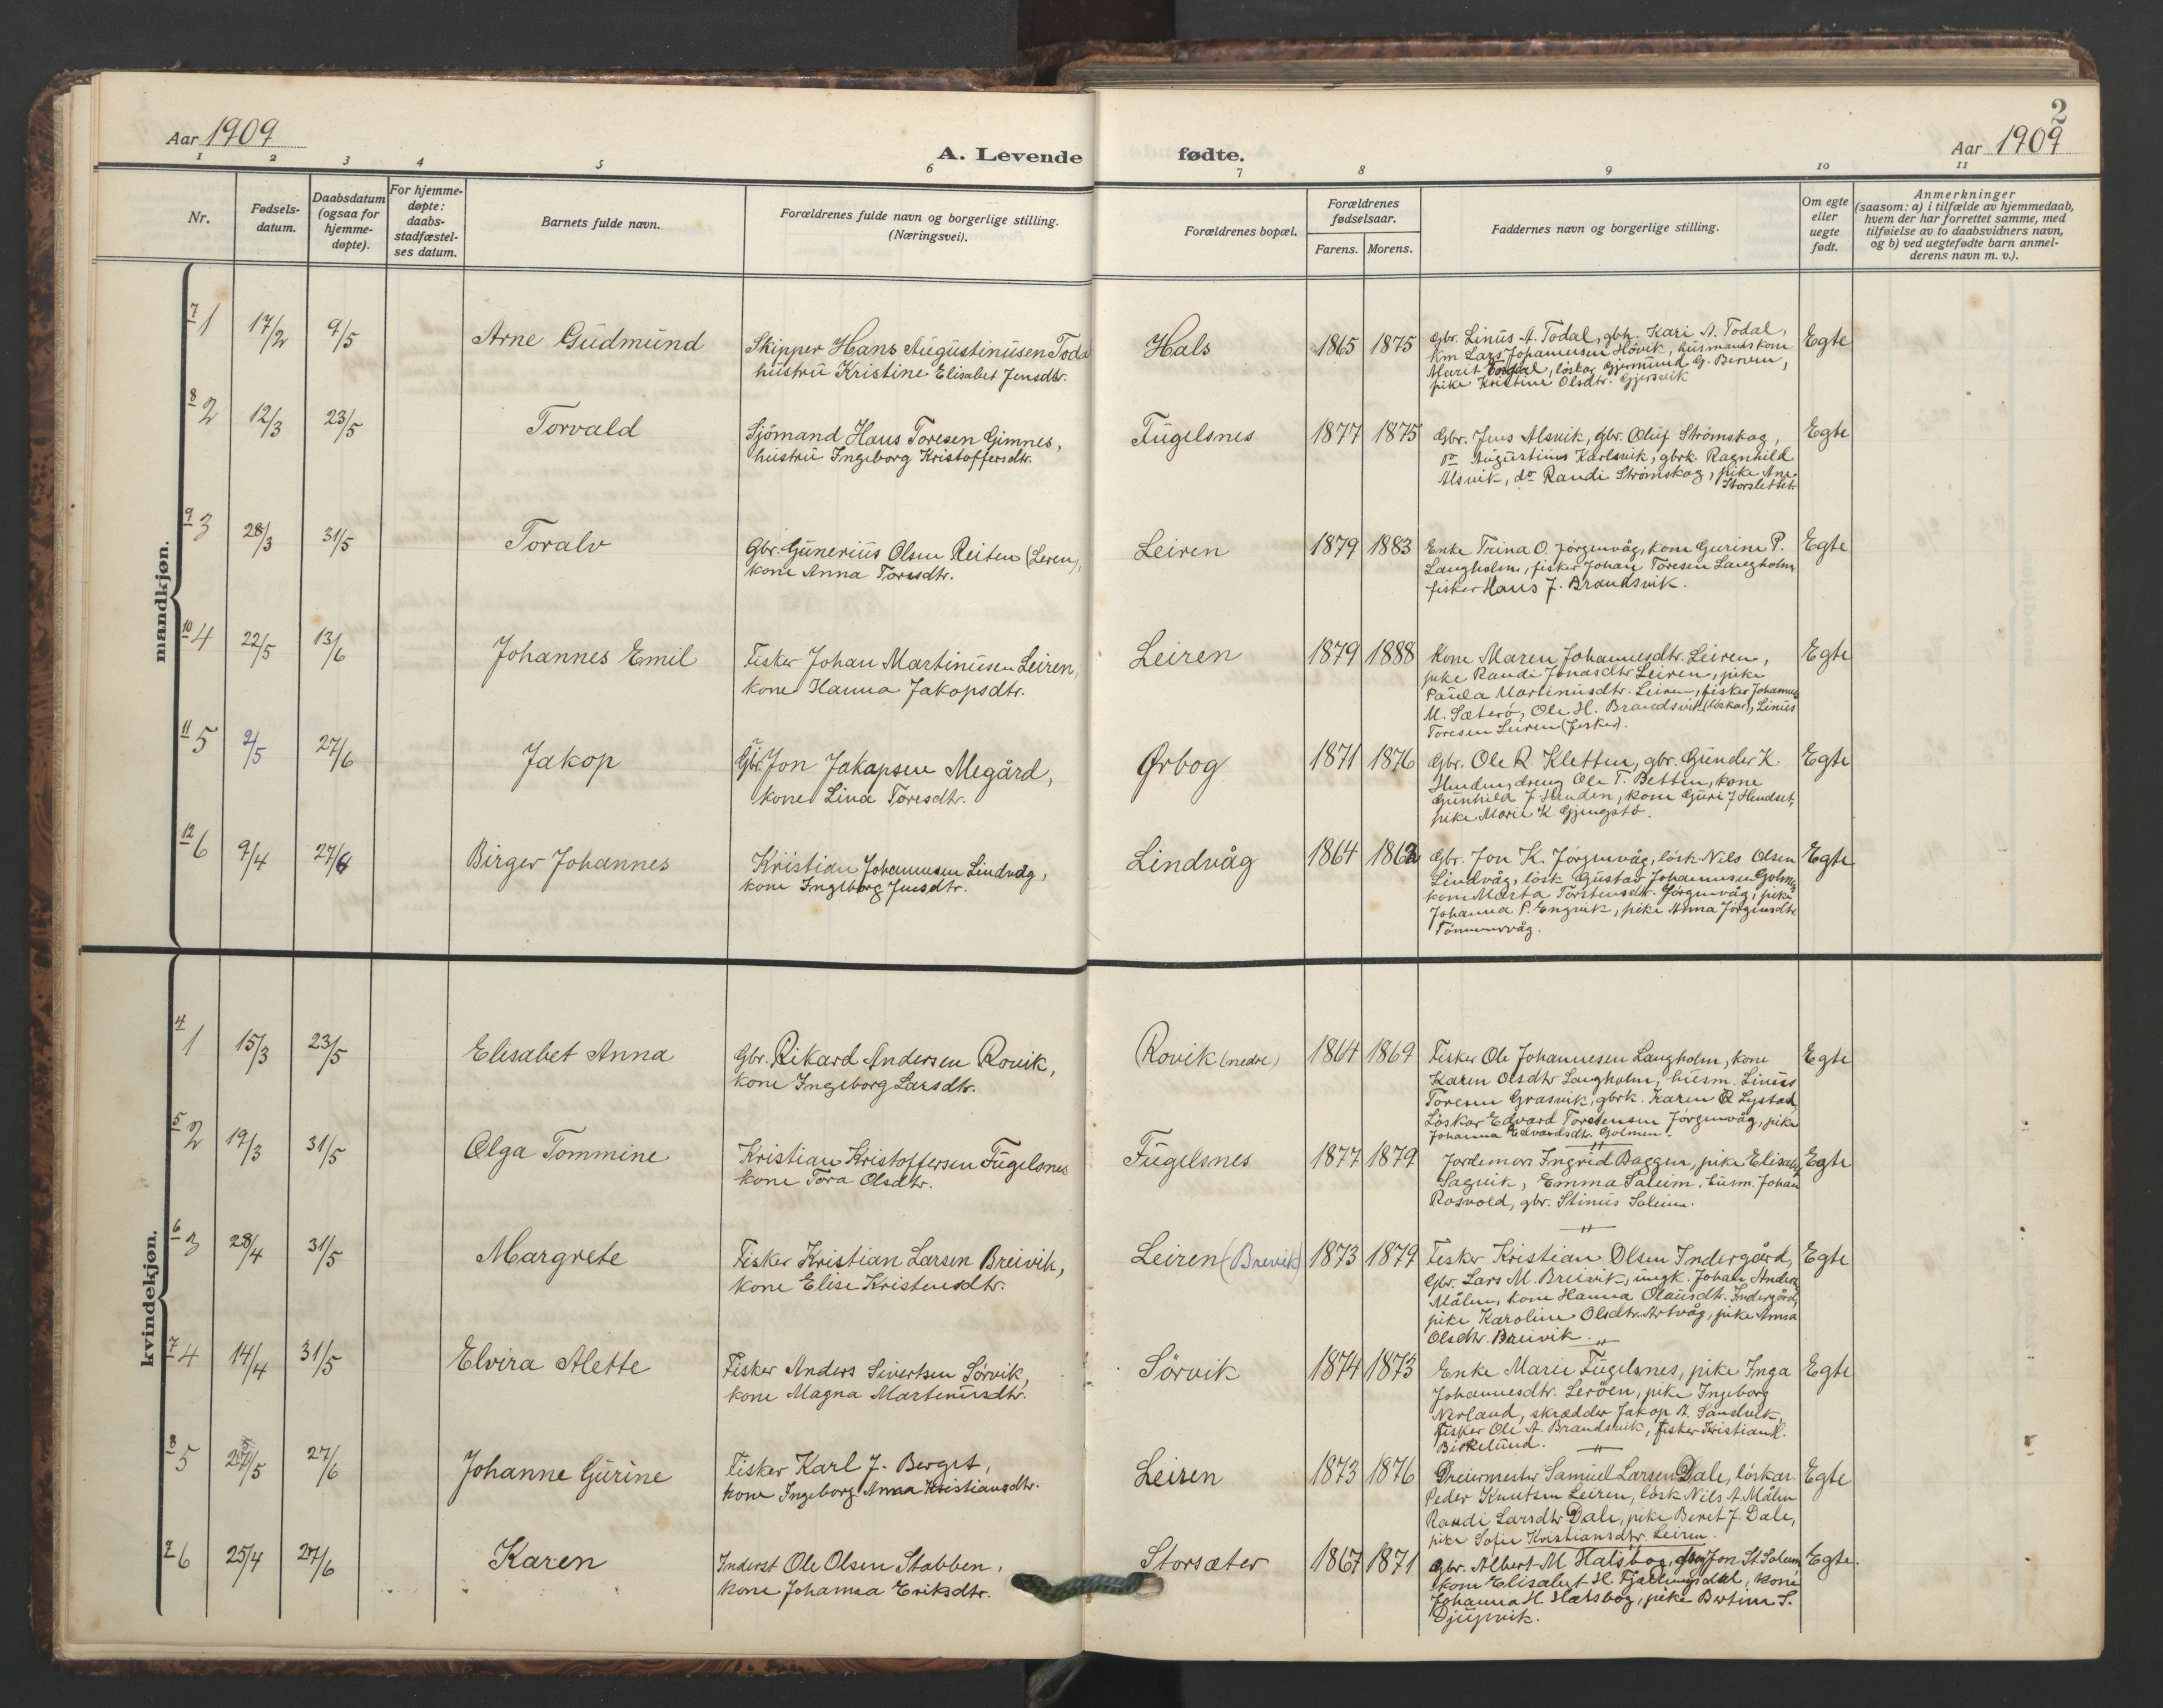 Aar 1909
A. Levende fødte.
2
Aar 1909
1 2 3 4 5 6 7 8 9 10 11
Nr.
Fødsels-
datum.
Daabsdatum
(ogsaa for
hjemme-
døpte).
For hjemme-
døpte:
daabs-
stadfæstel-
ses datum.
Barnets fulde navn.
Forældrenes fulde navn og borgerlige stilling.
(Næringsvei).
Forældrenes bopæl.
Forældrenes
fødselsaar.
Farens. Morens.
Faddernes navn og borgerlige stilling.
Om egte
eller
uegte
født.
Anmerkninger
(saasom: a) i tilfælde av hjemmedaab,
hvem der har forrettet samme, med
tilføielse av to daabsvidners navn,
og b) ved uegtefødte barn anmel-
derens navn m. v.).
mandkjøn.
7 1 17/2 9/5 Arne Gudmund
Skipper Hans Augustinusen Toda
hustru Kristine Elisabet Jensdtr.
Hals 1865 1875
Gbr. Linus A. Todal, gbh. Kari A. Todal,
km Lars Johannesen Høvik, husmandskone
Marit, løskar Gjermund G. Berven,
pike Kristine Olsdtr. Gjersvik
Egte
8 2 12/3 23/5 Torvald
Sjömand Hans Toresen Gimnes,
hustru Ingeborg Kristoffersdtr.
Fugelsnes 1877 1875
Gbr. Jens Alsvik, Gbr. Oluf Strömskag,
do Augustinus Karlsvik, gbrk. Ragnhild
Alsvik, do Randi Strömskag, pike Ane
Storslettet.
Egte
9 3 28/3 31/5 Toralv
Gbr. Gunerius Olsen Reiten (Leren),
kone Anna Toresdtr.
Leiren 1879 1883
Enke Trina O. Jörgenvåg, kone Gurine P.
Langholm, fisker Johan Toresen Langholm,
fisker Hans J. Brandsvik.
Egte
10 4 22/5 13/6 Johannes Emil
Fisker Johan Martinusen Leiren,
kone Hanna Jakopsdtr.
Leiren 1879 1888
Kone Maren Johannesdtr. Leiren,
pike Randi Jonasdtr Leiren, pike
Paula Martinusdtr. Leiren, fisker Johannes
M. Sæterö, Ole H. Brandsvik (løskar), Linus
Toresen Leiren (fisker).
Egte
11 5 2/5 27/6 Jakop
Gbr. Jon Jakopsen Megård,
kone Lina Toresdtr.
Ørbog 1871 1876
Gbr. Ole R. Kletten, gbr. Gunder K.
Henden, dreng Ole T. Betten, kone
Gunhild J. Henden, kone Guri J Hendset,
pike Marie K Gjengstö.
Egte
12 6 9/4 27/6 Birger Johannes
Kristian Johannesen Lindvåg,
kone Ingeborg Jensdtr.
Lindvåg 1864 1862
Gbr. Jon K. Jörgenvåg, lösk. Nils Olsen
Lindvåg, lösk Gustav Johannesen Golmen,
kone Marta Torstensdtr. Jörgenvåg, pike
Johanna P. Engvik, pike Anna Jörgensdtr
Tömmervåg.
Egte
kvindekjøn.
4 1 15/3 23/5 Elisabet Anna
Gbr. Rikard Andersen Rovik,
kone Ingeborg Larsdtr.
Rovik (nedre) 1864 1869
Fisker Ole Johannesen Langholm, kone
Karen Olsdtr Langholm, husm. Linus
Toresen Grasvik, gbrk. Karen R Lystad,
Löskar Edvard Torstensen Jörgenvåg, pike
Johanna Edvardsdtr. Golmen.
Egte
5 2 19/3 31/5 Olga Tommine
Kristian Kristoffersen Fugelsnes
kone Tora Olsdtr.
Fugelsnes 1877 1879
Jordemor Ingrid Baggen, pike Elisabet
Sagvik, Emma Saleim, husm. Johan
Rosvold, gbr. Stinus Soleim.
Egte
6 3 28/4 31/5 Margrete
Fisker Kristian Larsen Breivik,
kone Elise Kristensdtr.
Leiren (Breivik) 1873 1879
Fisker Kristian Olsen Indergård,
Gbr. Lars M. Breivik, ungk. Johan Anders.
Målen, kone Hanna Olausdtr. Indergård,
pike Karoline Olsdtr. Artvåg, pike Anna
Olsdtr. Breivik.
Egte
7 4 14/4 31/5 Elvira Alette
Fisker Anders Sivertsen Sörvik,
kone Magna Martinusdtr.
Sörvik 1874 1873
Enke Marie Fugelsnes, pike Inga
Johannesdtr. Leröen, pike Ingeborg
Nerland, skrædder Jakop A. Sandvik,
Fisker Ole A. Brandsvik, fisker Kristian K.
Birkelund.
Egte
8 5 27/5 27/6 Johanne Gurine
Fisker Karl J. Berget,
kone Ingeborg Anna Kristiansdtr.
Leiren 1873 1876
Dreiermester Samuel Larsen Dale, löskar
Peder Knutsen Leiren, lösk Nils A. Målen
Randi Larsdtr Dale, pike Beret J. Dale,
pike Sofie Kristiansdtr Leiren.
Egte
9 6 25/4 27/6 Karen
Inderst Ole Olsen Stabben,
kone Johanna Eriksdtr.
Storsæter 1867 1871
Gbr. Albert M Halsbog, gbr Jon St. Soleim,
kone Elisabet H. Fjellingsdal, kone
Johanna H Halsbog, pike Bertine S.
Djupvik.
Egte.